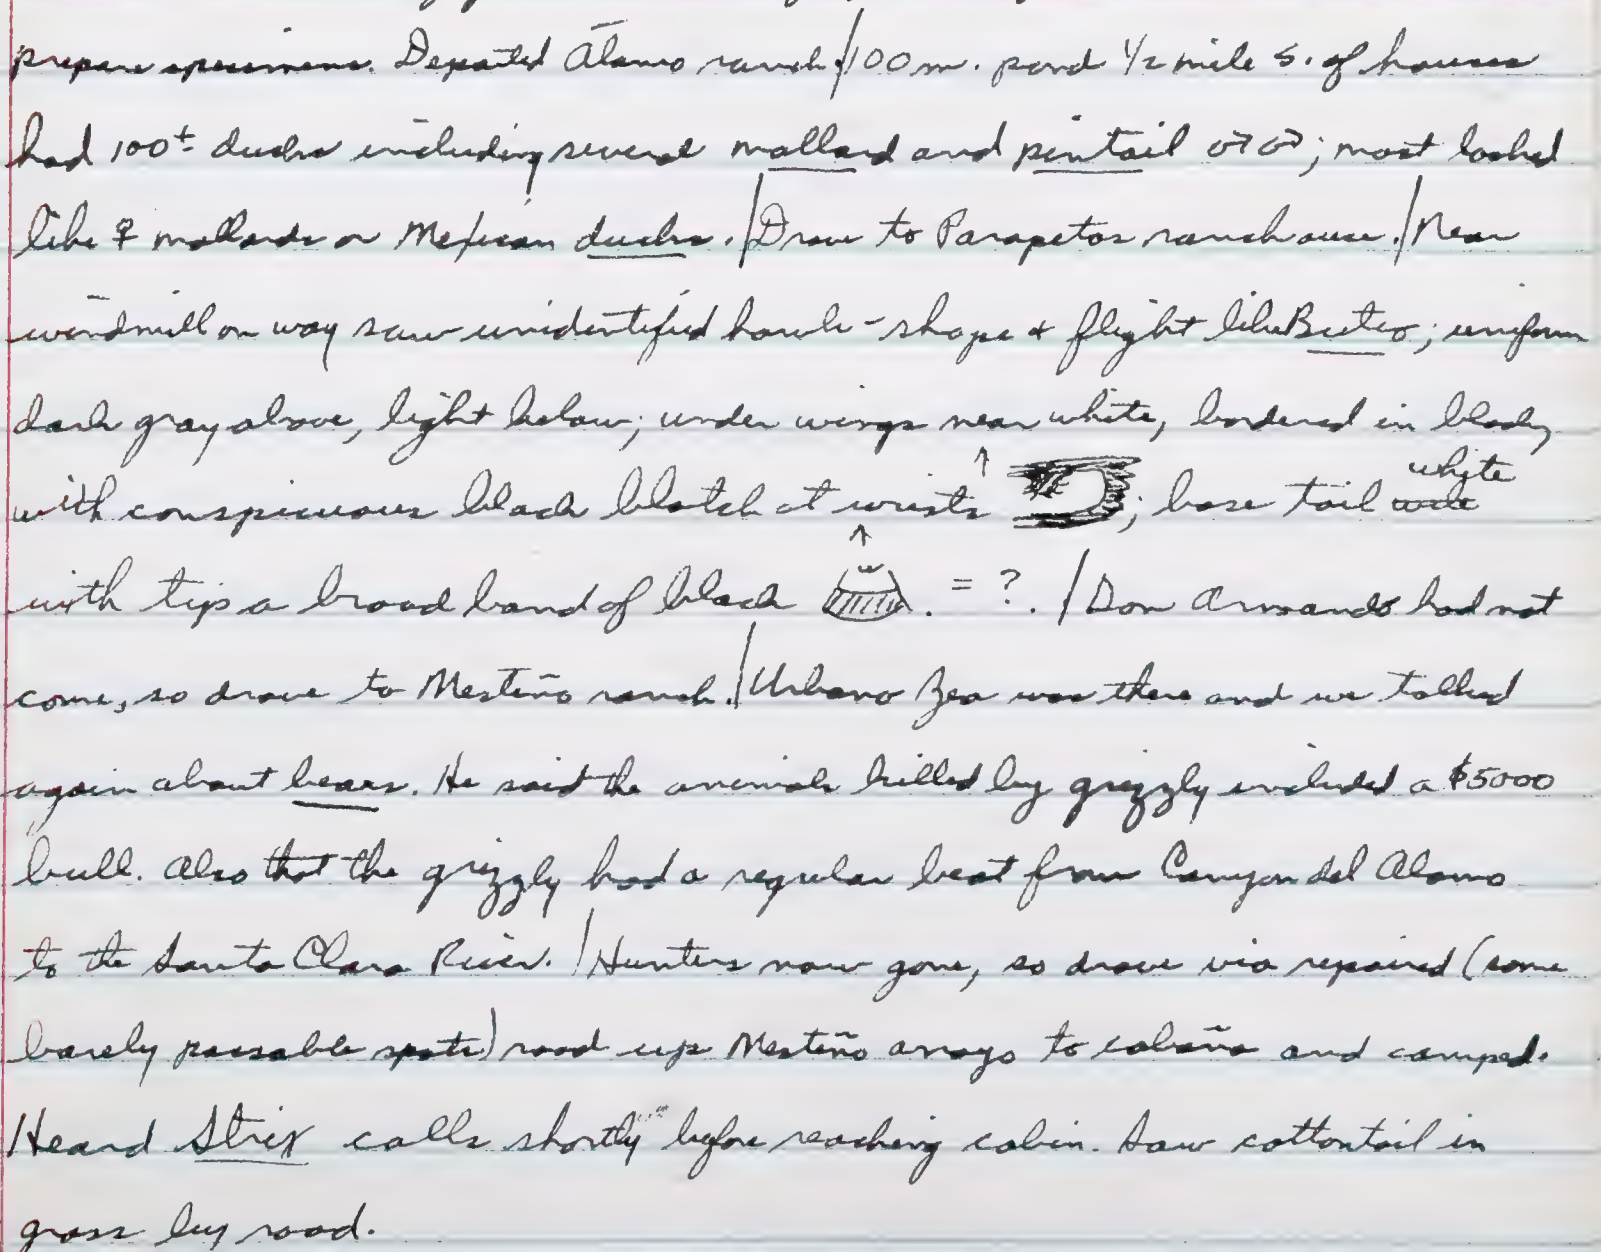 prepare specimens. Departed Álamo ranch/100 m. pond 1/2 mile S. of houses
had 100± ducks including several mallard and pintail ♂♂; most looked
like ♀ mallards or Mexican ducks./Drove to Parapetos ranchouse./Near
windmill on way saw unidentified hawk - shape + flight like Buteo; uniform
dark gray above, light below; under wings near white, bordered in black,
with conspicuous black blotch at wrists ↑ ; base tail wide white
with tip a broad band of black ↑ w . = ?. /Don Armando had not
come, so drove to Mesteño ranch./Urbano Zea was there and we talked
again about bears. He said the animals killed by grizzly included a $5000
bull. Also that the grizzly had a regular beat from Canyon del Alamo
to the Santa Clara River. /Hunters now gone, so drove via repaired (some
barely passable spots) road up Mesteño arroyo to cabaña and camped.
Heard Strix calls shortly before reaching cabin. Saw cottontail in
grass by road.